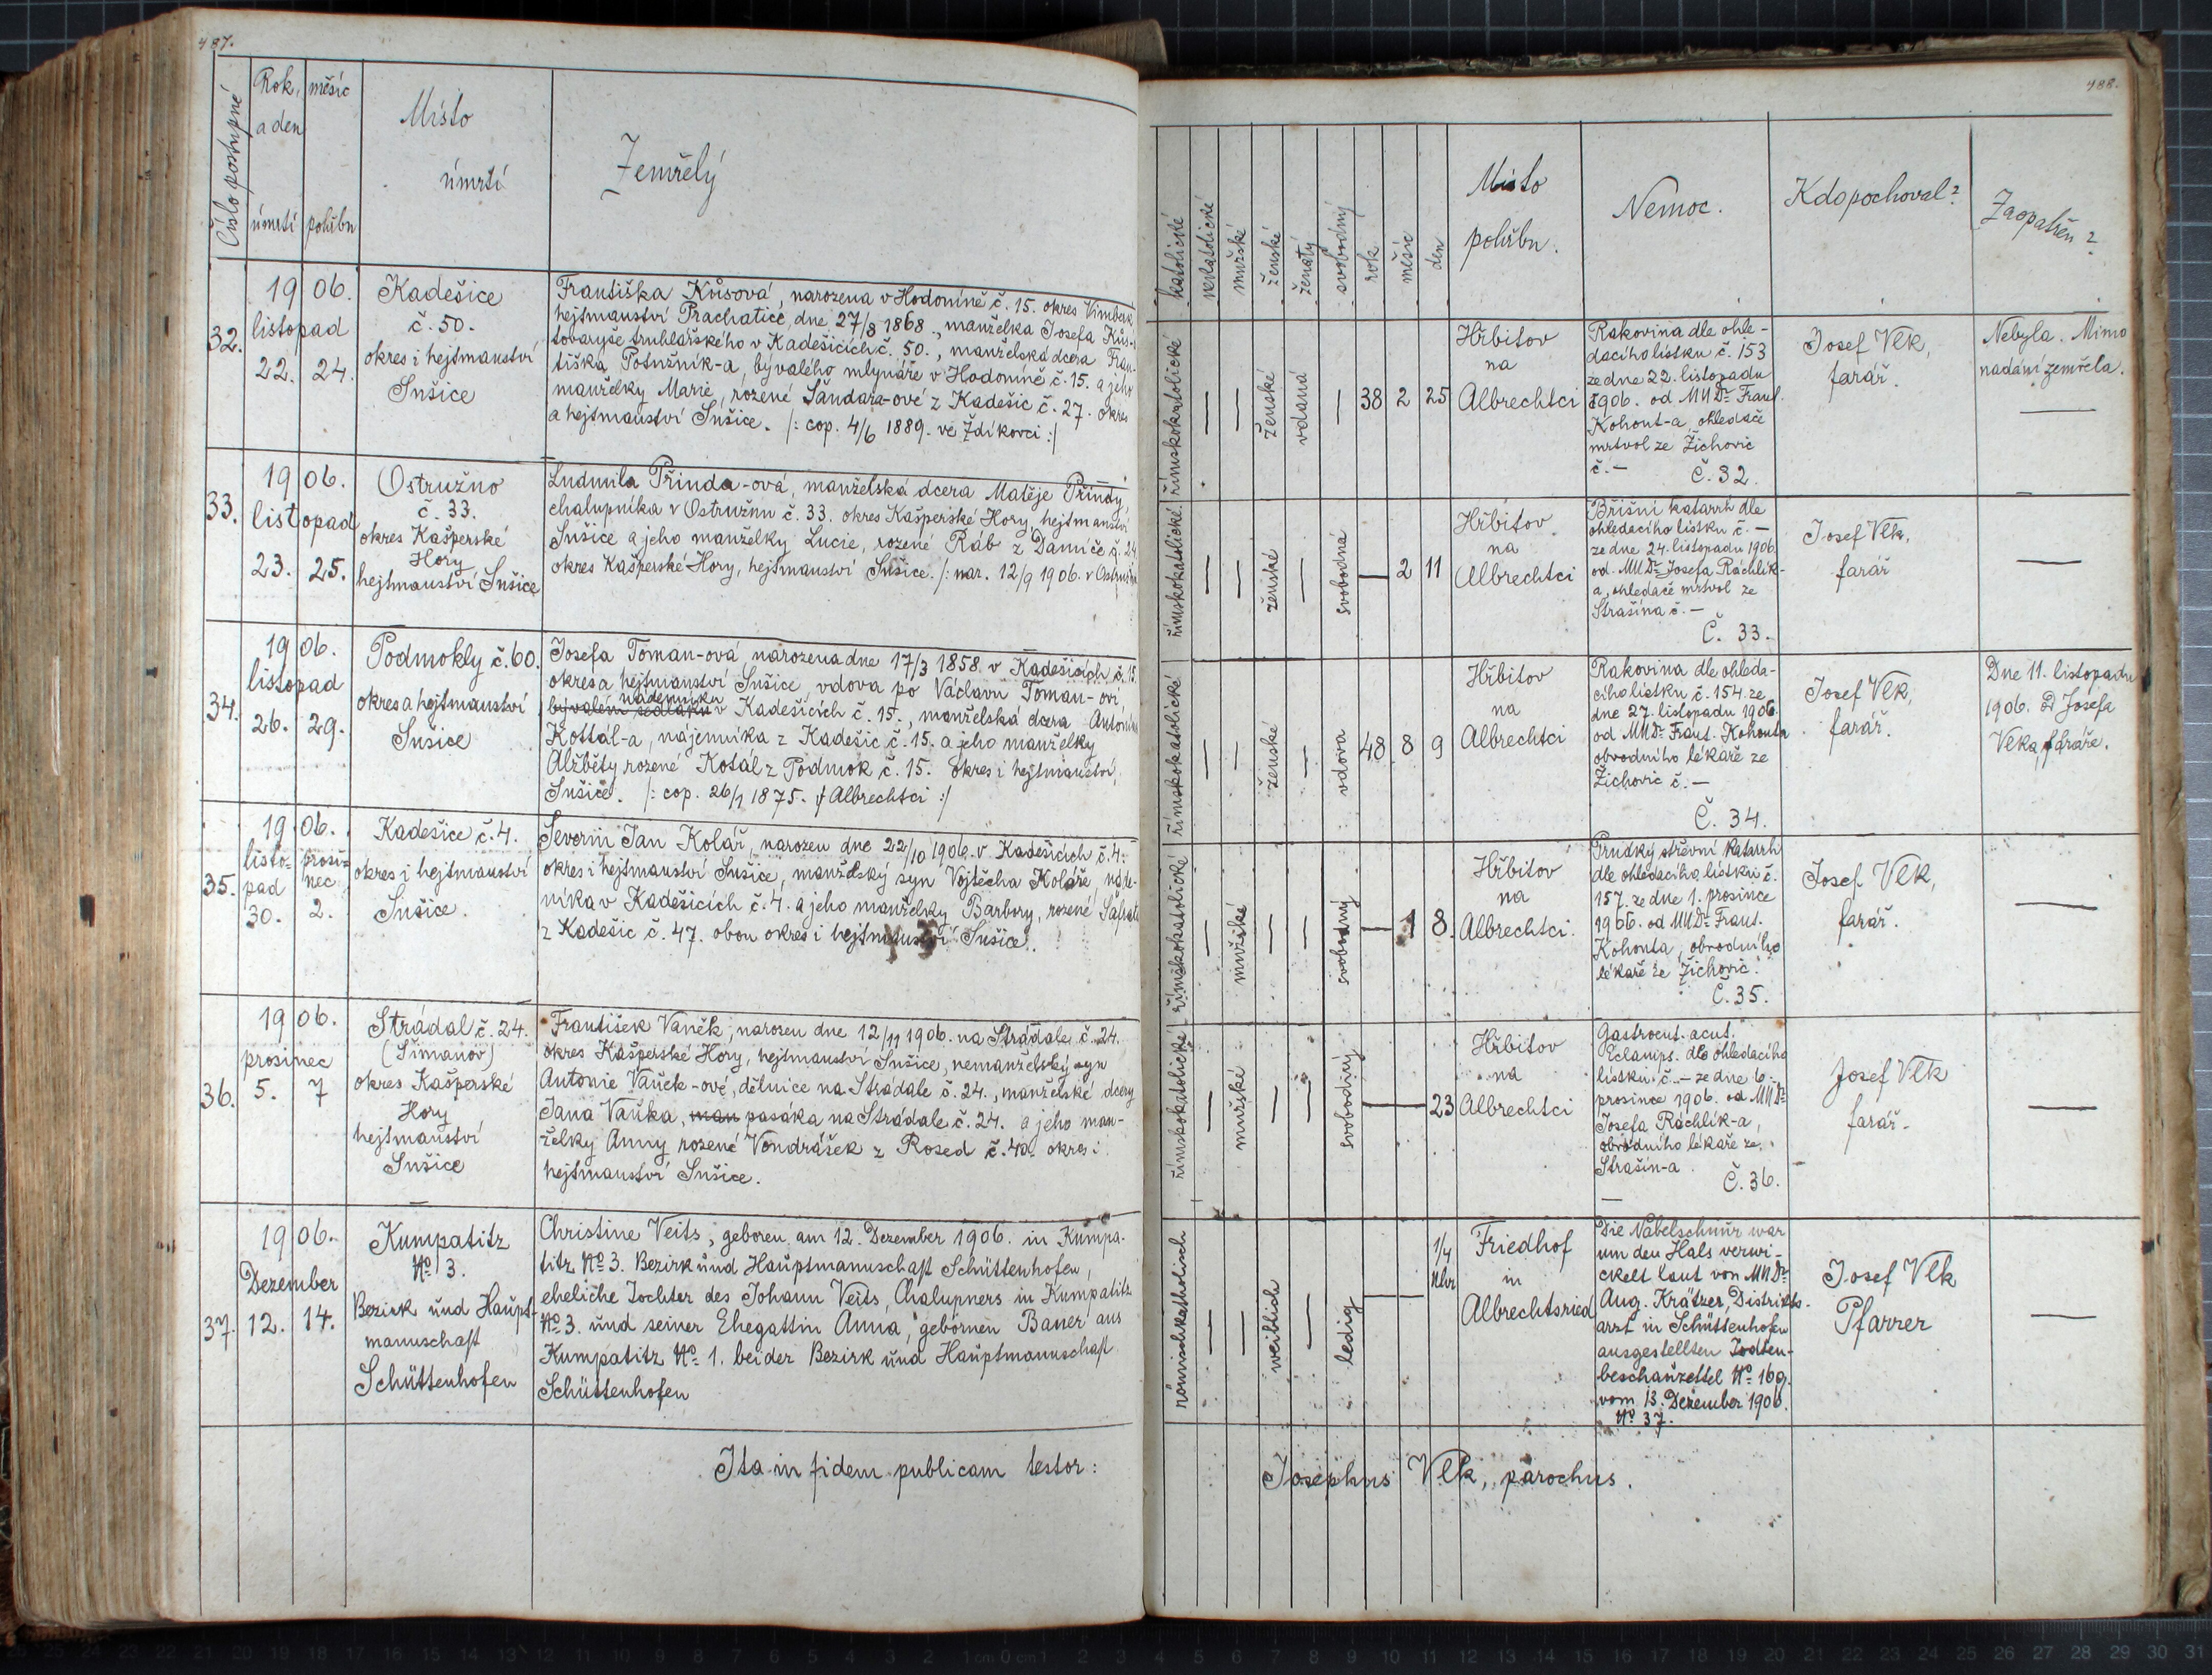 487.
Číslo postupné
Rok, měsíc
a den
úmrtí pohřbu
Místo
úmrtí
Zemřelý
32.
19 06.
listopad
22. 24.
Kadešice
č. 50.
okres i hejtmanství
Sušice
Františka Kůsová, narozena v Hodoníně č. 15. okres Vimberk
hejtmanství Prachatice, dne 27/8 1868., manželka Josefa Kůs-
tovaryše truhlářského v Kadešicích č. 50., manželská dcera Fran-
tiška Potužník-a, bývalého mlynáře v Hodoníně č. 15. a jeho
manželky Marie, rozené Šandara-ové z Kadešic č. 27. okres
a hejtmanství Sušice. /: cop. 4/6 1889. ve Zdíkovci :/
33.
19 06.
listopad
23. 25.
Ostružno
č. 33.
okres Kašperské
Hory
hejtmanství Sušice
Ludmila Přinda-ová, manželská dcera Matěje Přindy,
chalupníka v Ostružnu č. 33. okres Kašperské Hory, hejtmanství
Sušice a jeho manželky Lucie, rozené Ráb z Damíče č. 24
okres Kašperské Hory, hejtmanství Sušice. /: nar. 12/9 1906. v Ostružně
34.
19 06.
listopad
26. 29.
Podmokly č. 60.
okres a hejtmanství
Sušice
Josefa Toman-ová, narozena dne 17/3 1858. v Kadešicích č. 15.
okres a hejtmanství Sušice, vdova po Václavu Toman-ovi,
nádenníku
bývalém sedláku v Kadešicích č. 15., manželská dcera Antonína
Kottál-a, nájemníka z Kadešic č. 15. a jeho manželky
Alžběty rozené Kotál z Podmok č. 15. okres i hejtmanství,
Sušice. /: cop. 26/1 1875. v Albrechtci :/
35.
19 06.
listo- prosi-
pad nec
30. 2.
Kadešice č. 4.
okres i hejtmanství
Sušice.
Severin Jan Kolář, narozen dne 22/10 1906. v Kadešicích č. 4.
okres i hejtmanství Sušice, manželský syn Vojtěcha Koláře, náde-
níka v Kadešicích č. 4. a jeho manželky Barbory, rozené
z Kadešic č. 47. obou okres i hejtmanství Sušice.
36.
19 06.
prosinec
5. 7
Strádal č. 24.
(Šimanov)
okres Kašperské
Hory
hejtmanství
Sušice
František Vaněk, narozen dne 12/11 1906. na Strádale č. 24.
okres Kašperské Hory, hejtmanství Sušice, nemanželský syn
Antonie Vaněk-ové, dělnice na Strádale č. 24., manželské dcery
Jana Vaňka, man pasáka na Strádale č. 24. a jeho man-
želky Anny rozené Vondrášek z Rosed č. 40. okres i
hejtmanství Sušice.
37.
19 06.
Dezember
12. 14.
Kumpatitz
No 3.
Bezirk und Haupt-
mannschaft
Schüttenhofen
Christine Veits, geboren am 12. Dezember 1906. in Kumpa-
titz No 3. Bezirk und Hauptmannschaft Schüttenhofen,
eheliche Tochter des Johann Veits, Chalupners in Kumpatitz
No 3. und seiner Ehegattin Anna, gebornen Bauer aus
Kumpatitz No 1. beider Bezirk und Hauptmannschaft
Schüttenhofen
Ita in fidem publicam testor:
488.
katolické
nekatolické
mužské
ženské
ženatý
svobodný
rok
měsíc
den
Místo
pohřbu.
Nemoc.
Kdo pochoval?
Zaopatřen?
římskokatolické
—
—
ženské
vdaná
—
38 2 25
Hřbitov
na
Albrechtci
Rakovina dle ohle-
dacího lístku č. 153
ze dne 22. listopadu
1906. od MUDr Frant.
Kohout-a, ohledače
mrtvol ze Žichovic
č. —
Č. 32.
Josef Vlk,
farář.
Nebyla. Mimo
nadání zemřela.
—
římskokatolické
—
—
ženské
—
svobodná
— 2 11
Hřbitov
na
Albrechtci
Břišní katarrh dle
ohledacího lístku č. —
ze dne 24. listopadu 1906.
od MUDr Josefa Ráchlík-
a, ohledače mrtvol ze
Strašína č. —
Č. 33.
Josef Vlk,
farář
—
římskokatolické
—
—
ženské
—
vdova
48 8 9
Hřbitov
na
Albrechtci
Rakovina dle ohleda-
cího lístku č. 154. ze
dne 27. listopadu 1906.
od MUDr Frant. Kohouta
obvodního lékaře ze
Žichovic č. —
Č. 34.
Josef Vlk,
farář.
Dne 11. listopadu
1906. Josefa
Vlka, faráře.
římskokatolické
—
mužské
—
—
svobodný
— 1 8.
Hřbitov
na
Albrechtci.
Prudký střevní katarrh
dle ohledacího lístku č.
157. ze dne 1. prosince
1906. od MUDr Frant.
Kohouta, obvodního
lékaře ze Žichovic.
Č. 35.
Josef Vlk,
farář.
—
římskokatolické
—
mužské
—
—
svobodný
— — 23
Hřbitov
na
Albrechtci
Gastrocut. acut.
Eclamps. dle ohledacího
lístku č. — ze dne 6.
prosince 1906. od MUDr
Josefa Ráchlík-a,
obvodního lékaře ze
Strašín-a
Č. 36.
Josef Vlk
farář.
—
römischkatholisch
—
—
weiblich
—
ledig
— — 1/4
Uhr
Friedhof
in
Albrechtsried
Die Nabelschnur war
um den Hals verwi-
ckelt laut von MUDr
Aug. Krätzer, Distrikts-
arzt in Schüttenhofen
ausgestellten Todten-
beschauzettel No 169.
vom 13. Dezember 1906.
No 37.
Josef Vlk
Pfarrer
—
Josephus Vlk, parochus.